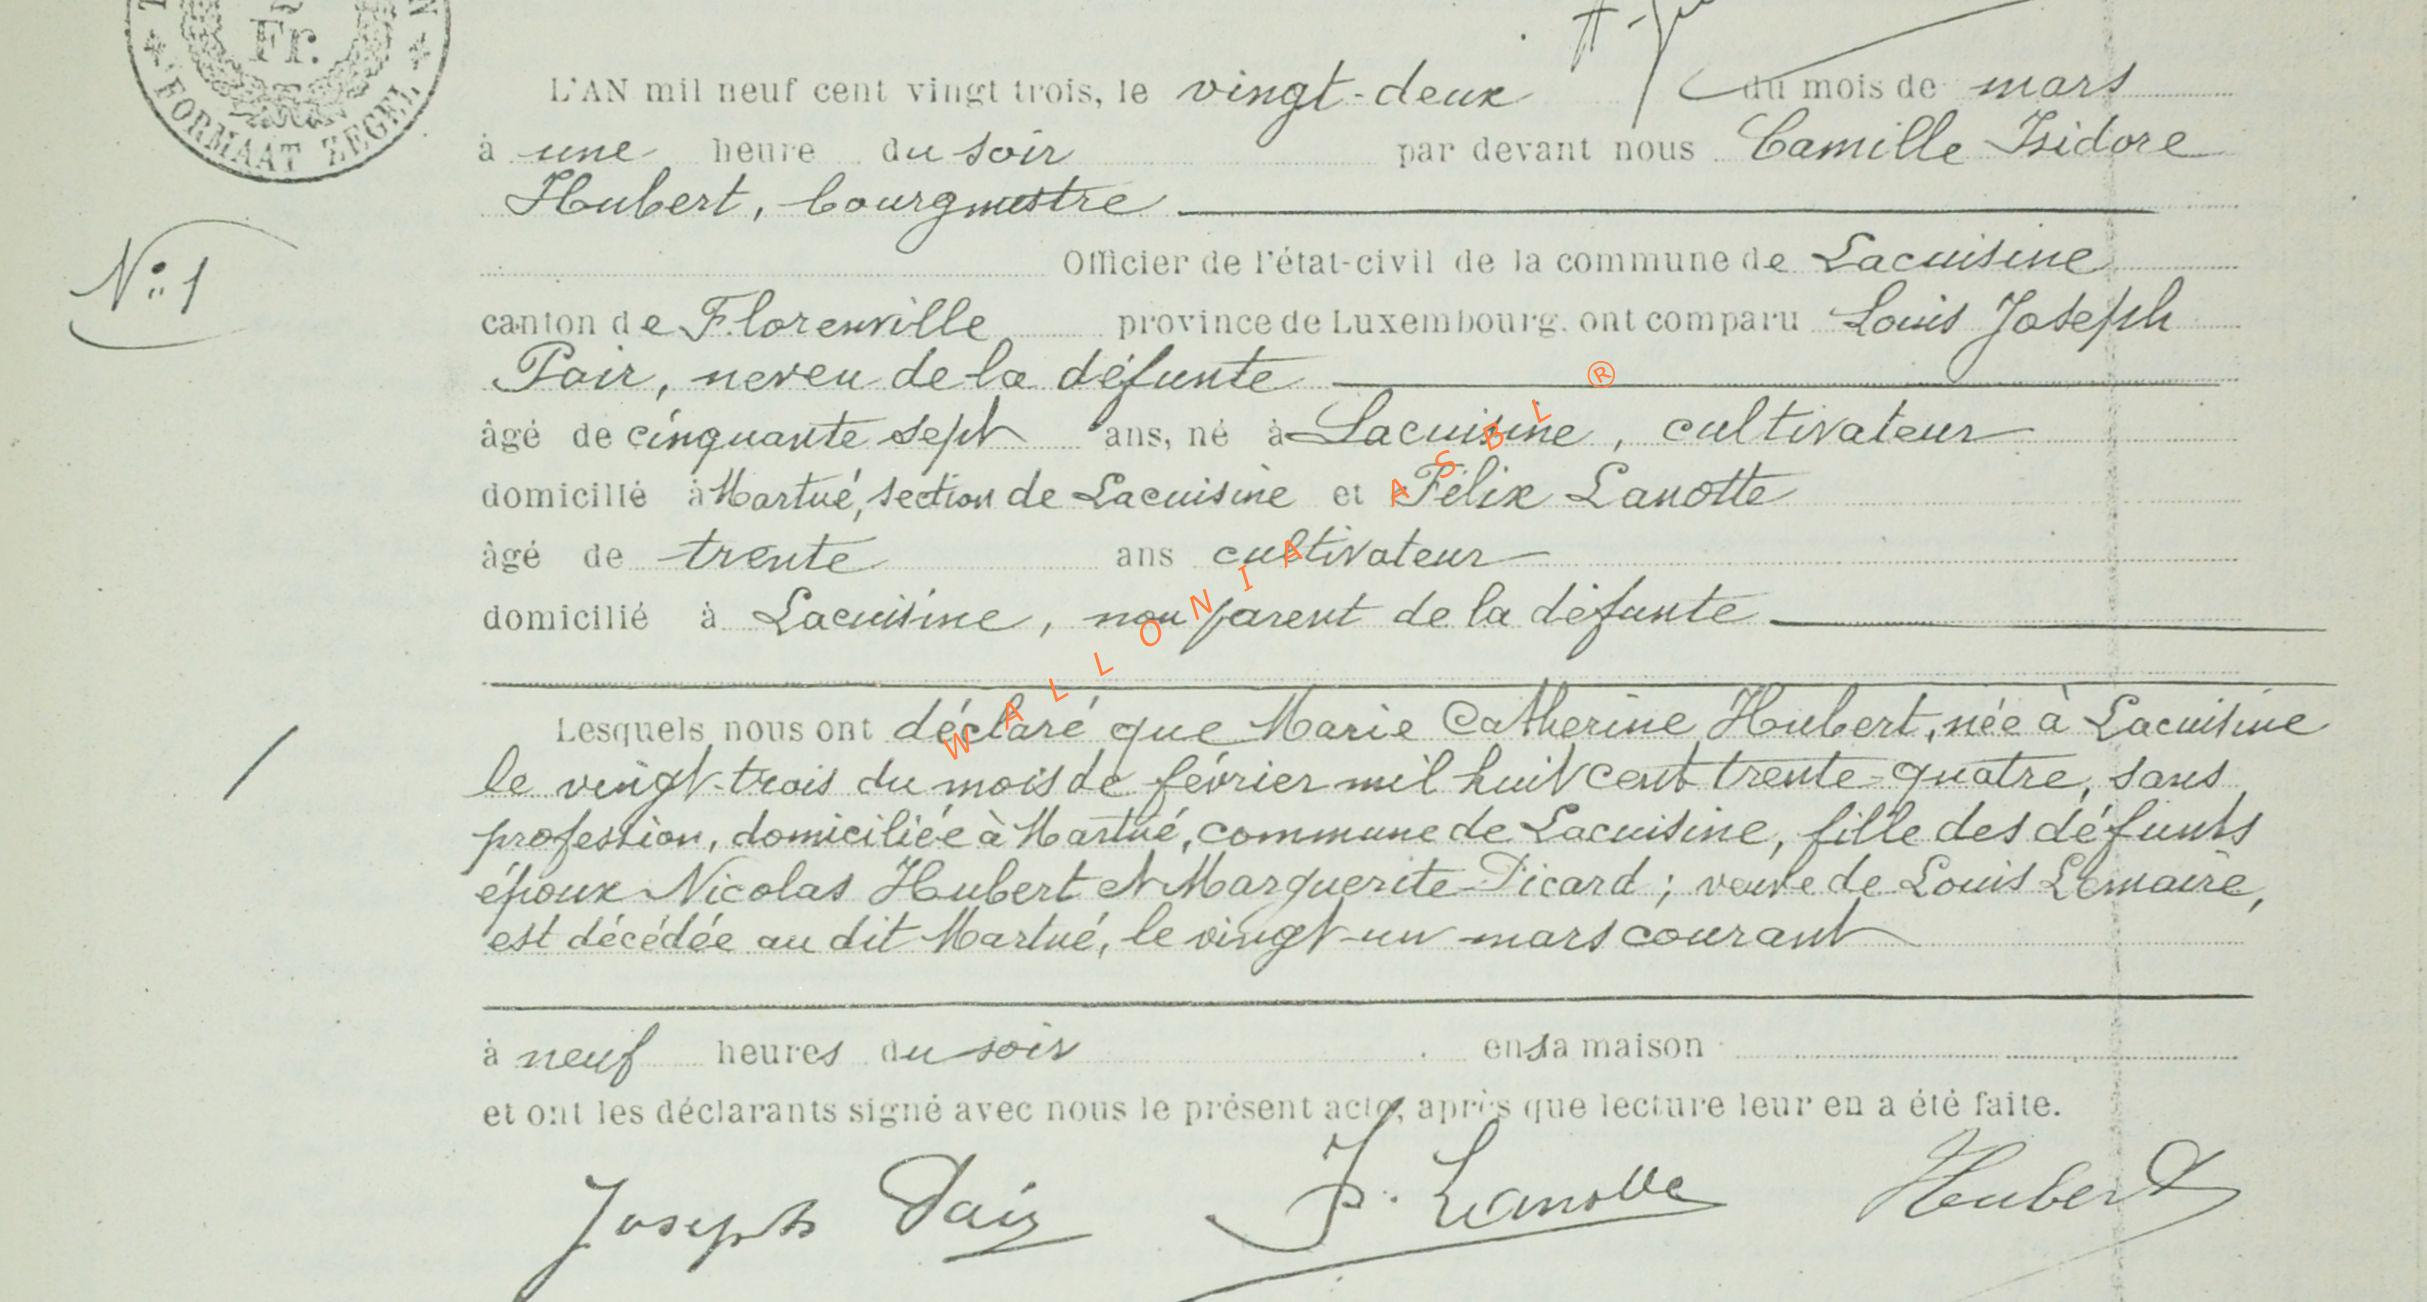 Fr.
FORMAAT ZEGEL
L'AN mil neuf cent vingt trois, le vingt-deux du mois de mars
à une heure du soir par devant nous Camille Isidore
Hubert, bourgmestre
N° 1
Officier de l'état-civil de la commune de Lacuisine
canton de Florenville province de Luxembourg, ont comparu Louis Joseph
Pair, neveu de la défunte
âgé de cinquante sept ans, né à Lacuisine, cultivateur
domicilié à Martué, section de Lacuisine et Félix Lanotte
âgé de trente ans cultivateur
domicilié à Lacuisine, non parent de la défunte
Lesquels nous ont déclaré que Marie Catherine Hubert, née à Lacuisine
le vingt-trois du mois de février mil huit cent trente-quatre, sans
profession, domiciliée à Martué, commune de Lacuisine, fille des défunts
époux Nicolas Hubert et Marguerite Picard ; veuve de Louis Lemaire,
est décédée au dit Martué, le vingt-un mars courant
à neuf heures du soir en sa maison
et ont les déclarants signé avec nous le présent acte, après que lecture leur en a été faite.
Joseph Pair F. Lanotte Hubert
WALLONIA ASBL ®